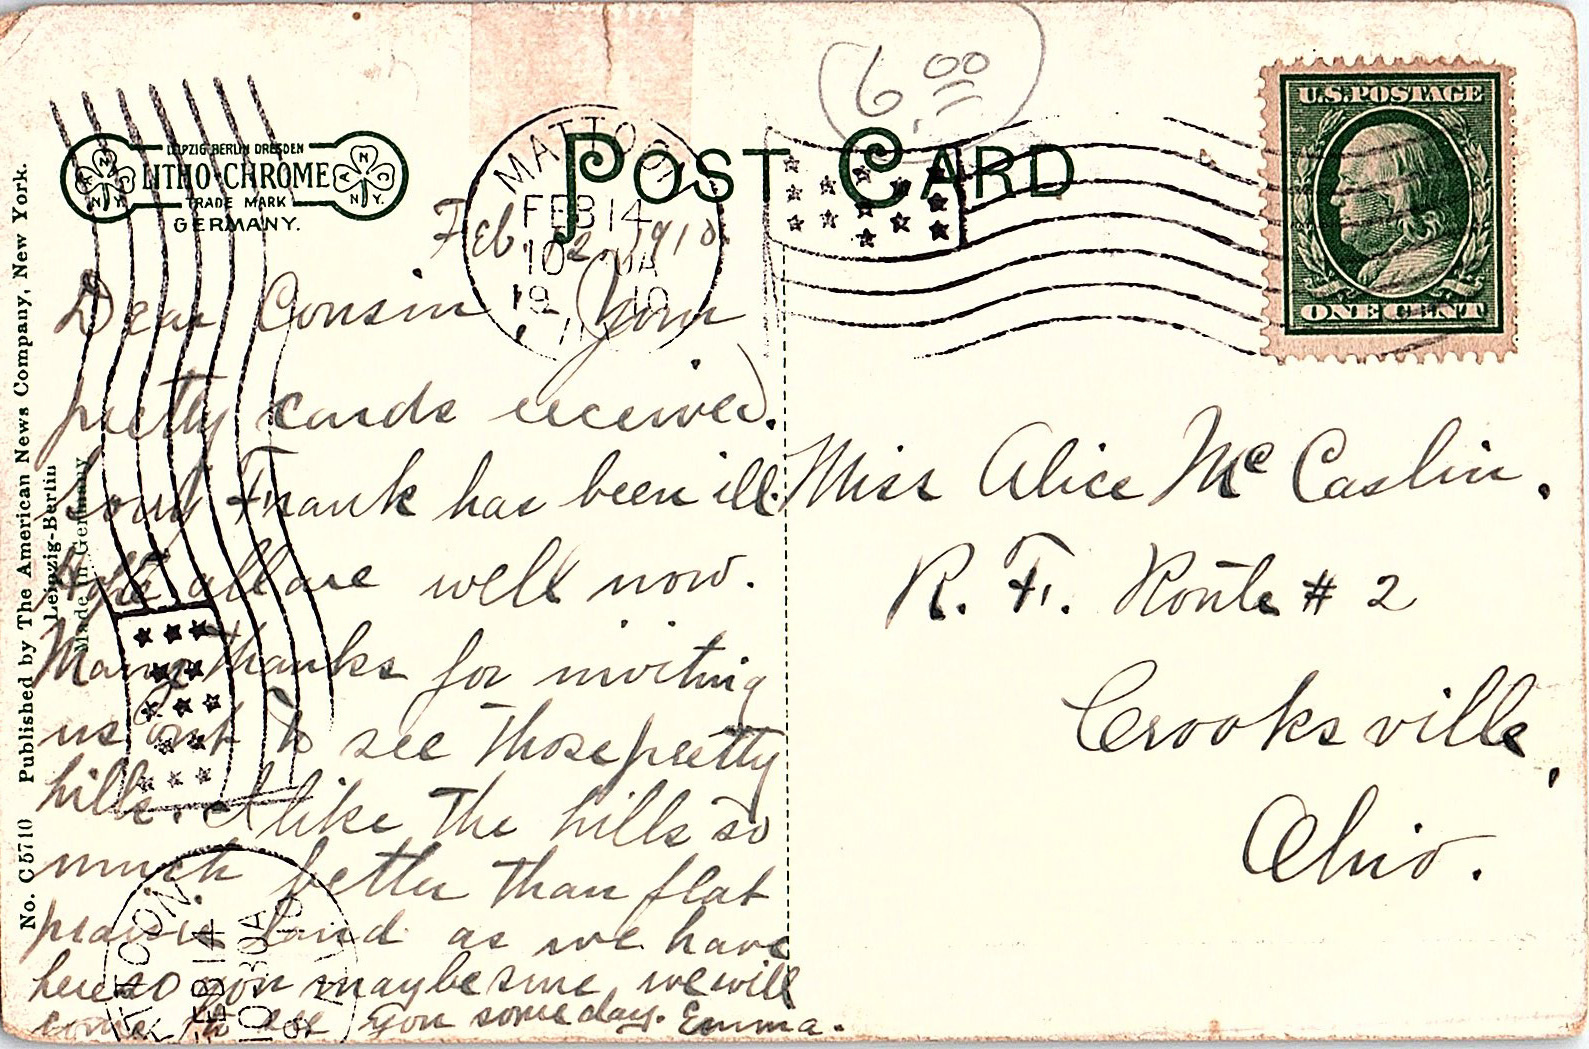 6.00
U.S. POSTAGE
ONE CENT
POST CARD
LEIPZIG BERLIN DRESDEN
LITHO-CHROME
TRADE MARK
GERMANY.
MATTOON
FEB 14
10 30A
1910
Feb. 12, 1910.
Dear Cousin Your
pretty cards received.
Sorry Frank has been ill.
Hope all are well now.
Many thanks for inviting
us out to see those pretty
hills. I like the hills so
much better than flat
prairie land as we have
here so you may be sure we will
come to see you some day. Emma.
Miss Alice McCaslin.
R. F. Route # 2
Crooksville,
Ohio.
MATTOON
FEB 14
10 30A
No. C 5710 Published by The American News Company, New York.
Leipzig-Berlin
Made in Germany